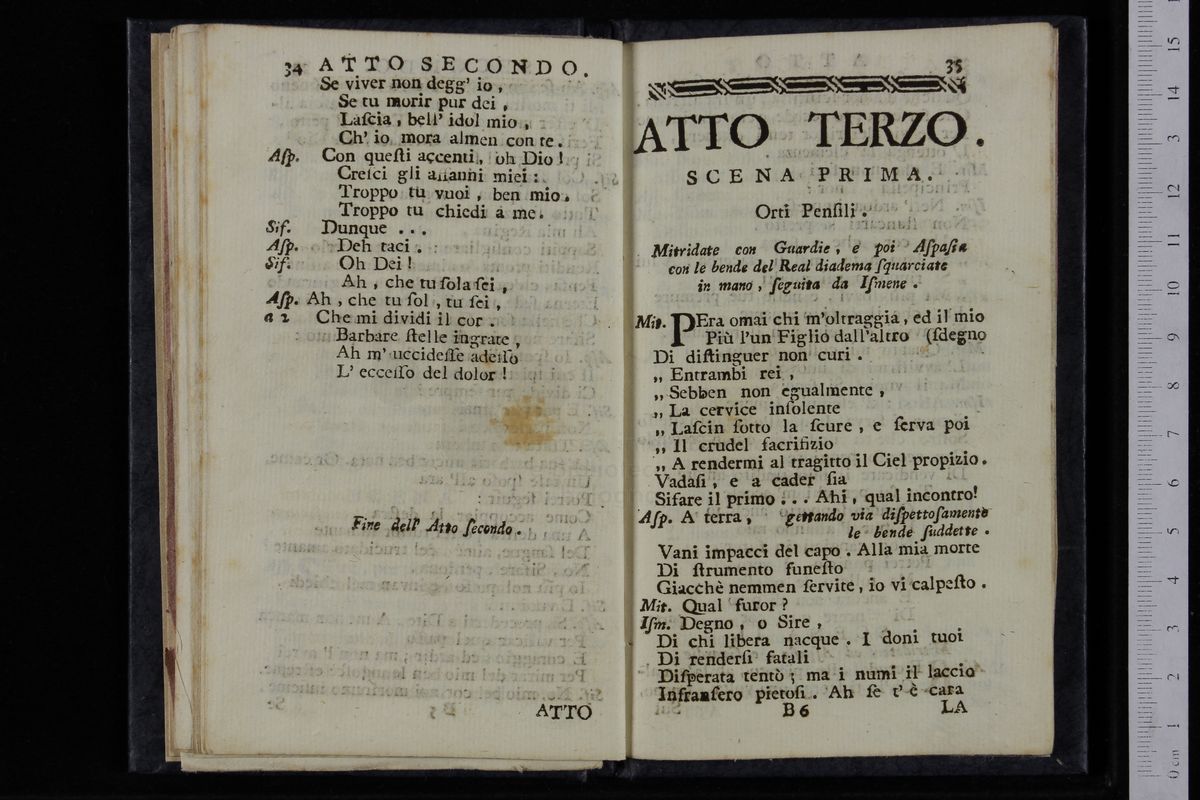 34 ATTO SECONDO.
Se viver non degg' io,
Se tu morir pur dei,
Laſcia, bell' idol mio,
Ch' io mora almen con te.
Aſp. Con queſti accenti, oh Dio!
Creſci gli affanni miei:
Troppo tu vuoi, ben mio.
Troppo tu chiedi a me.
Sif. Dunque ...
Aſp. Deh taci.
Sif. Oh Dei!
Ah, che tu ſola ſei,
Aſp. Ah, che tu ſol, tu ſei,
a 2 Che mi dividi il cor.
Barbare ſtelle ingrate,
Ah m' uccideſſe adeſſo
L' ecceſſo del dolor!
Fine dell' Atto ſecondo.
ATTO
35
ATTO TERZO.
SCENA PRIMA.
Orti Penſili.
Mitridate con Guardie, e poi Aſpaſia
con le bende del Real diadema ſquarciate
in mano, ſeguita da Iſmene.
Mit. PEra omai chi m'oltraggia, ed il mio
Più l'un Figlio dall'altro (ſdegno
Di diſtinguer non curi.
„ Entrambi rei,
„ Sebben non egualmente,
„ La cervice inſolente
„ Laſcin ſotto la ſcure, e ſerva poi
„ Il crudel ſacrifizio
„ A rendermi al tragitto il Ciel propizio.
Vadaſi, e a cader ſia
Sifare il primo ... Ahi, qual incontro!
Aſp. A terra, gettando via diſpettoſamente
le bende ſuddette.
Vani impacci del capo. Alla mia morte
Di ſtrumento funeſto
Giacchè nemmen ſervite, io vi calpeſto.
Mit. Qual furor?
Iſm. Degno, o Sire,
Di chi libera nacque. I doni tuoi
Di renderſi fatali
Diſperata tentò; ma i numi il laccio
Infranſero pietoſi. Ah ſe t'è cara
B 6 LA